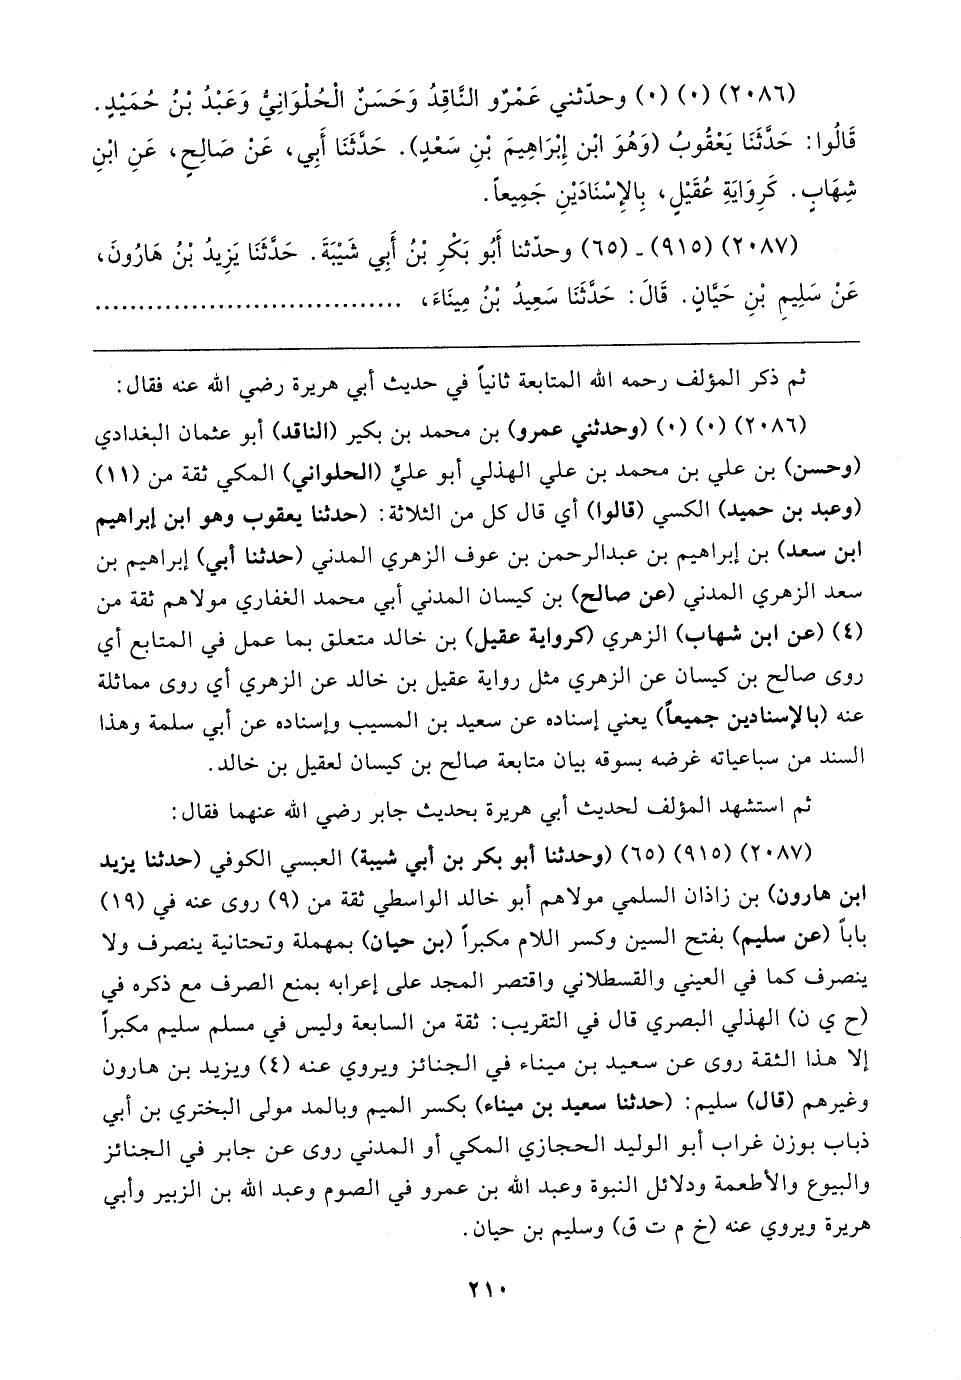 (٢٠٨٦) (٠) (٠) وحدّثني عَمْرٌو النَّاقِدُ وَحَسَنٌ الْحُلْوَانِيُّ وَعَبْدُ بْنُ حُمَيْدٍ.
قَالُوا: حَدَّثَنَا يَعْقُوبُ (وَهُوَ ابْن إِبْرَاهِيمَ بْنِ سَعْدٍ). حَدَّثَنَا أَبِي، عَنْ صَالِحٍ، عَنِ ابْنِ
شِهَابٍ. كَرِوَايَةِ عُقَيْلٍ، بِالإِسْنَادَيْنِ جَمِيعاً.
(٢٠٨٧) (٩١٥) - (٦٥) وحدّثنا أَبُو بَكْرِ بْنُ أَبِي شَيْبَةَ. حَدَّثَنَا يَزِيدُ بْنُ هَارُونَ،
عَنْ سَلِيمِ بْنِ حَيَّانٍ. قَالَ: حَدَّثَنَا سَعِيدُ بْنُ مِينَاءَ، ..................................
ثم ذكر المؤلف رحمه الله المتابعة ثانياً في حديث أبي هريرة رضي الله عنه فقال:
(٢٠٨٦) (٠) (٠) (وحدثني عمرو) بن محمد بن بكير (الناقد) أبو عثمان البغدادي
(وحسن) بن علي بن محمد بن علي الهذلي أبو عليٍّ (الحلواني) المكي ثقة من (١١)
(وعبد بن حميد) الكسي (قالوا) أي قال كل من الثلاثة: (حدثنا يعقوب وهو ابن إبراهيم
ابن سعد) بن إبراهيم بن عبدالرحمن بن عوف الزهري المدني (حدثنا أبي) إبراهيم بن
سعد الزهري المدني (عن صالح) بن كيسان المدني أبي محمد الغفاري مولاهم ثقة من
(٤) (عن ابن شهاب) الزهري (كرواية عقيل) بن خالد متعلق بما عمل في المتابع أي
روى صالح بن كيسان عن الزهري مثل رواية عقيل بن خالد عن الزهري أي روى مماثلة
عنه (بالإسنادين جميعاً) يعني إسناده عن سعيد بن المسيب وإسناده عن أبي سلمة وهذا
السند من سباعياته غرضه بسوقه بيان متابعة صالح بن كيسان لعقيل بن خالد.
ثم استشهد المؤلف لحديث أبي هريرة بحديث جابر رضي الله عنهما فقال:
(٢٠٨٧) (٩١٥) (٦٥) (وحدثنا أبو بكر بن أبي شيبة) العبسي الكوفي (حدثنا يزيد
ابن هارون) بن زاذان السلمي مولاهم أبو خالد الواسطي ثقة من (٩) روى عنه في (١٩)
باباً (عن سليم) بفتح السين وكسر اللام مكبراً (بن حيان) بمهملة وتحتانية ينصرف ولا
ينصرف كما في العيني والقسطلاني واقتصر المجد على إعرابه بمنع الصرف مع ذكره في
(ح ي ن) الهذلي البصري قال في التقريب: ثقة من السابعة وليس في مسلم سليم مكبراً
إلا هذا الثقة روى عن سعيد بن ميناء في الجنائز ويروي عنه (٤) ويزيد بن هارون
وغيرهم (قال) سليم: (حدثنا سعيد بن ميناء) بكسر الميم وبالمد مولى البختري بن أبي
ذباب بوزن غراب أبو الوليد الحجازي المكي أو المدني روى عن جابر في الجنائز
والبيوع والأطعمة ودلائل النبوة وعبد الله بن عمرو في الصوم وعبد الله بن الزبير وأبي
هريرة ويروي عنه (خ م ت ق) وسليم بن حيان.
٢١٠